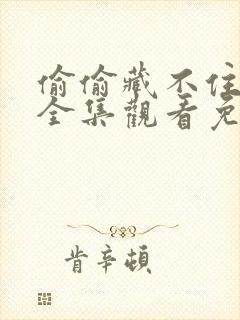 偷偷藏不住
全集觀看免
肯辛頓